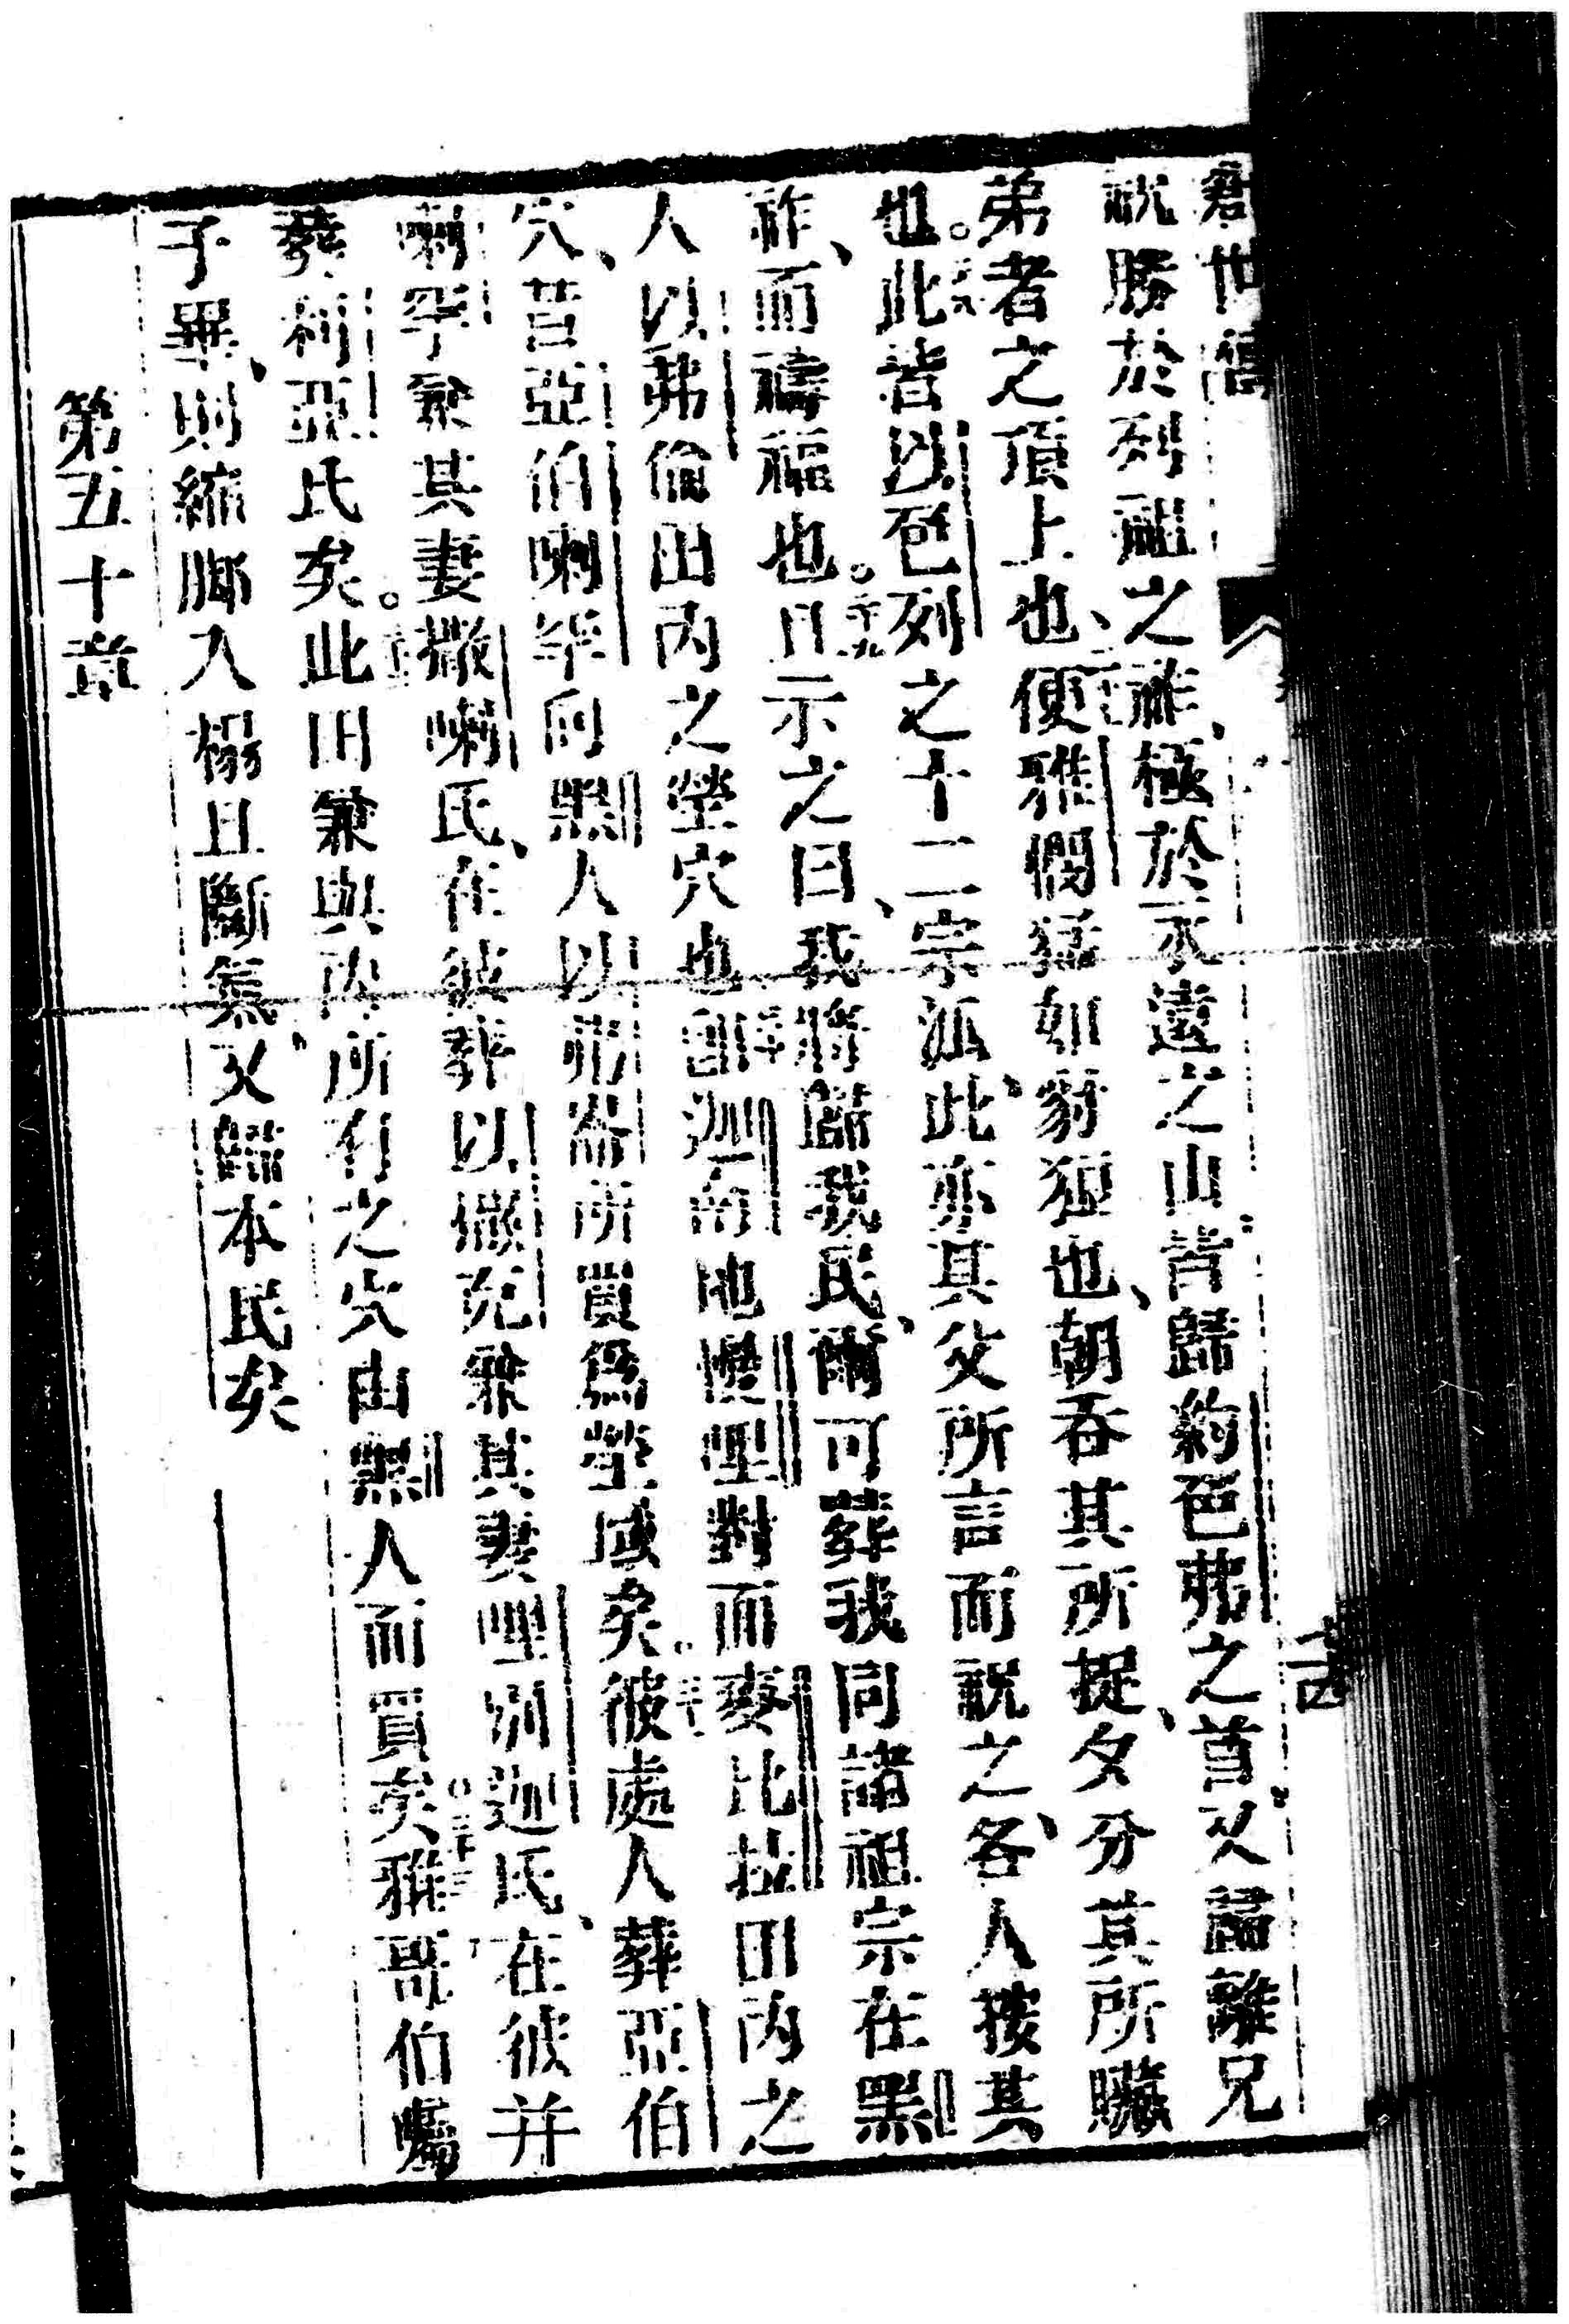 祝勝於列祖之祚、極於永遠之山、皆歸約色弗之首、又歸離兄
弟者之頂上也、便雅憫猛如豺狼也、朝吞其所捉、夕分其所贜
也。此皆以色列之十二宗派、此亦其父所言而說之、各人按其
祚、而禱福也。且示之曰、我將歸我民、爾可葬我同諸祖宗在黑
人以弗倫田內之塋穴也、即迦南地𡃤嚜對面麥比拉田內之
穴、昔亞伯喇罕向黑人以弗崙所買為塋域矣。彼處人葬亞伯
喇罕兼其妻撒喇氏、在彼葬以撒克兼其妻哩別迦氏、在彼并
葬利亞氏矣。此田兼與內所有之穴由黑人而買矣。雅哥伯囑
子畢、則縮脚入榻且斷氣、又歸本民矣
第五十章